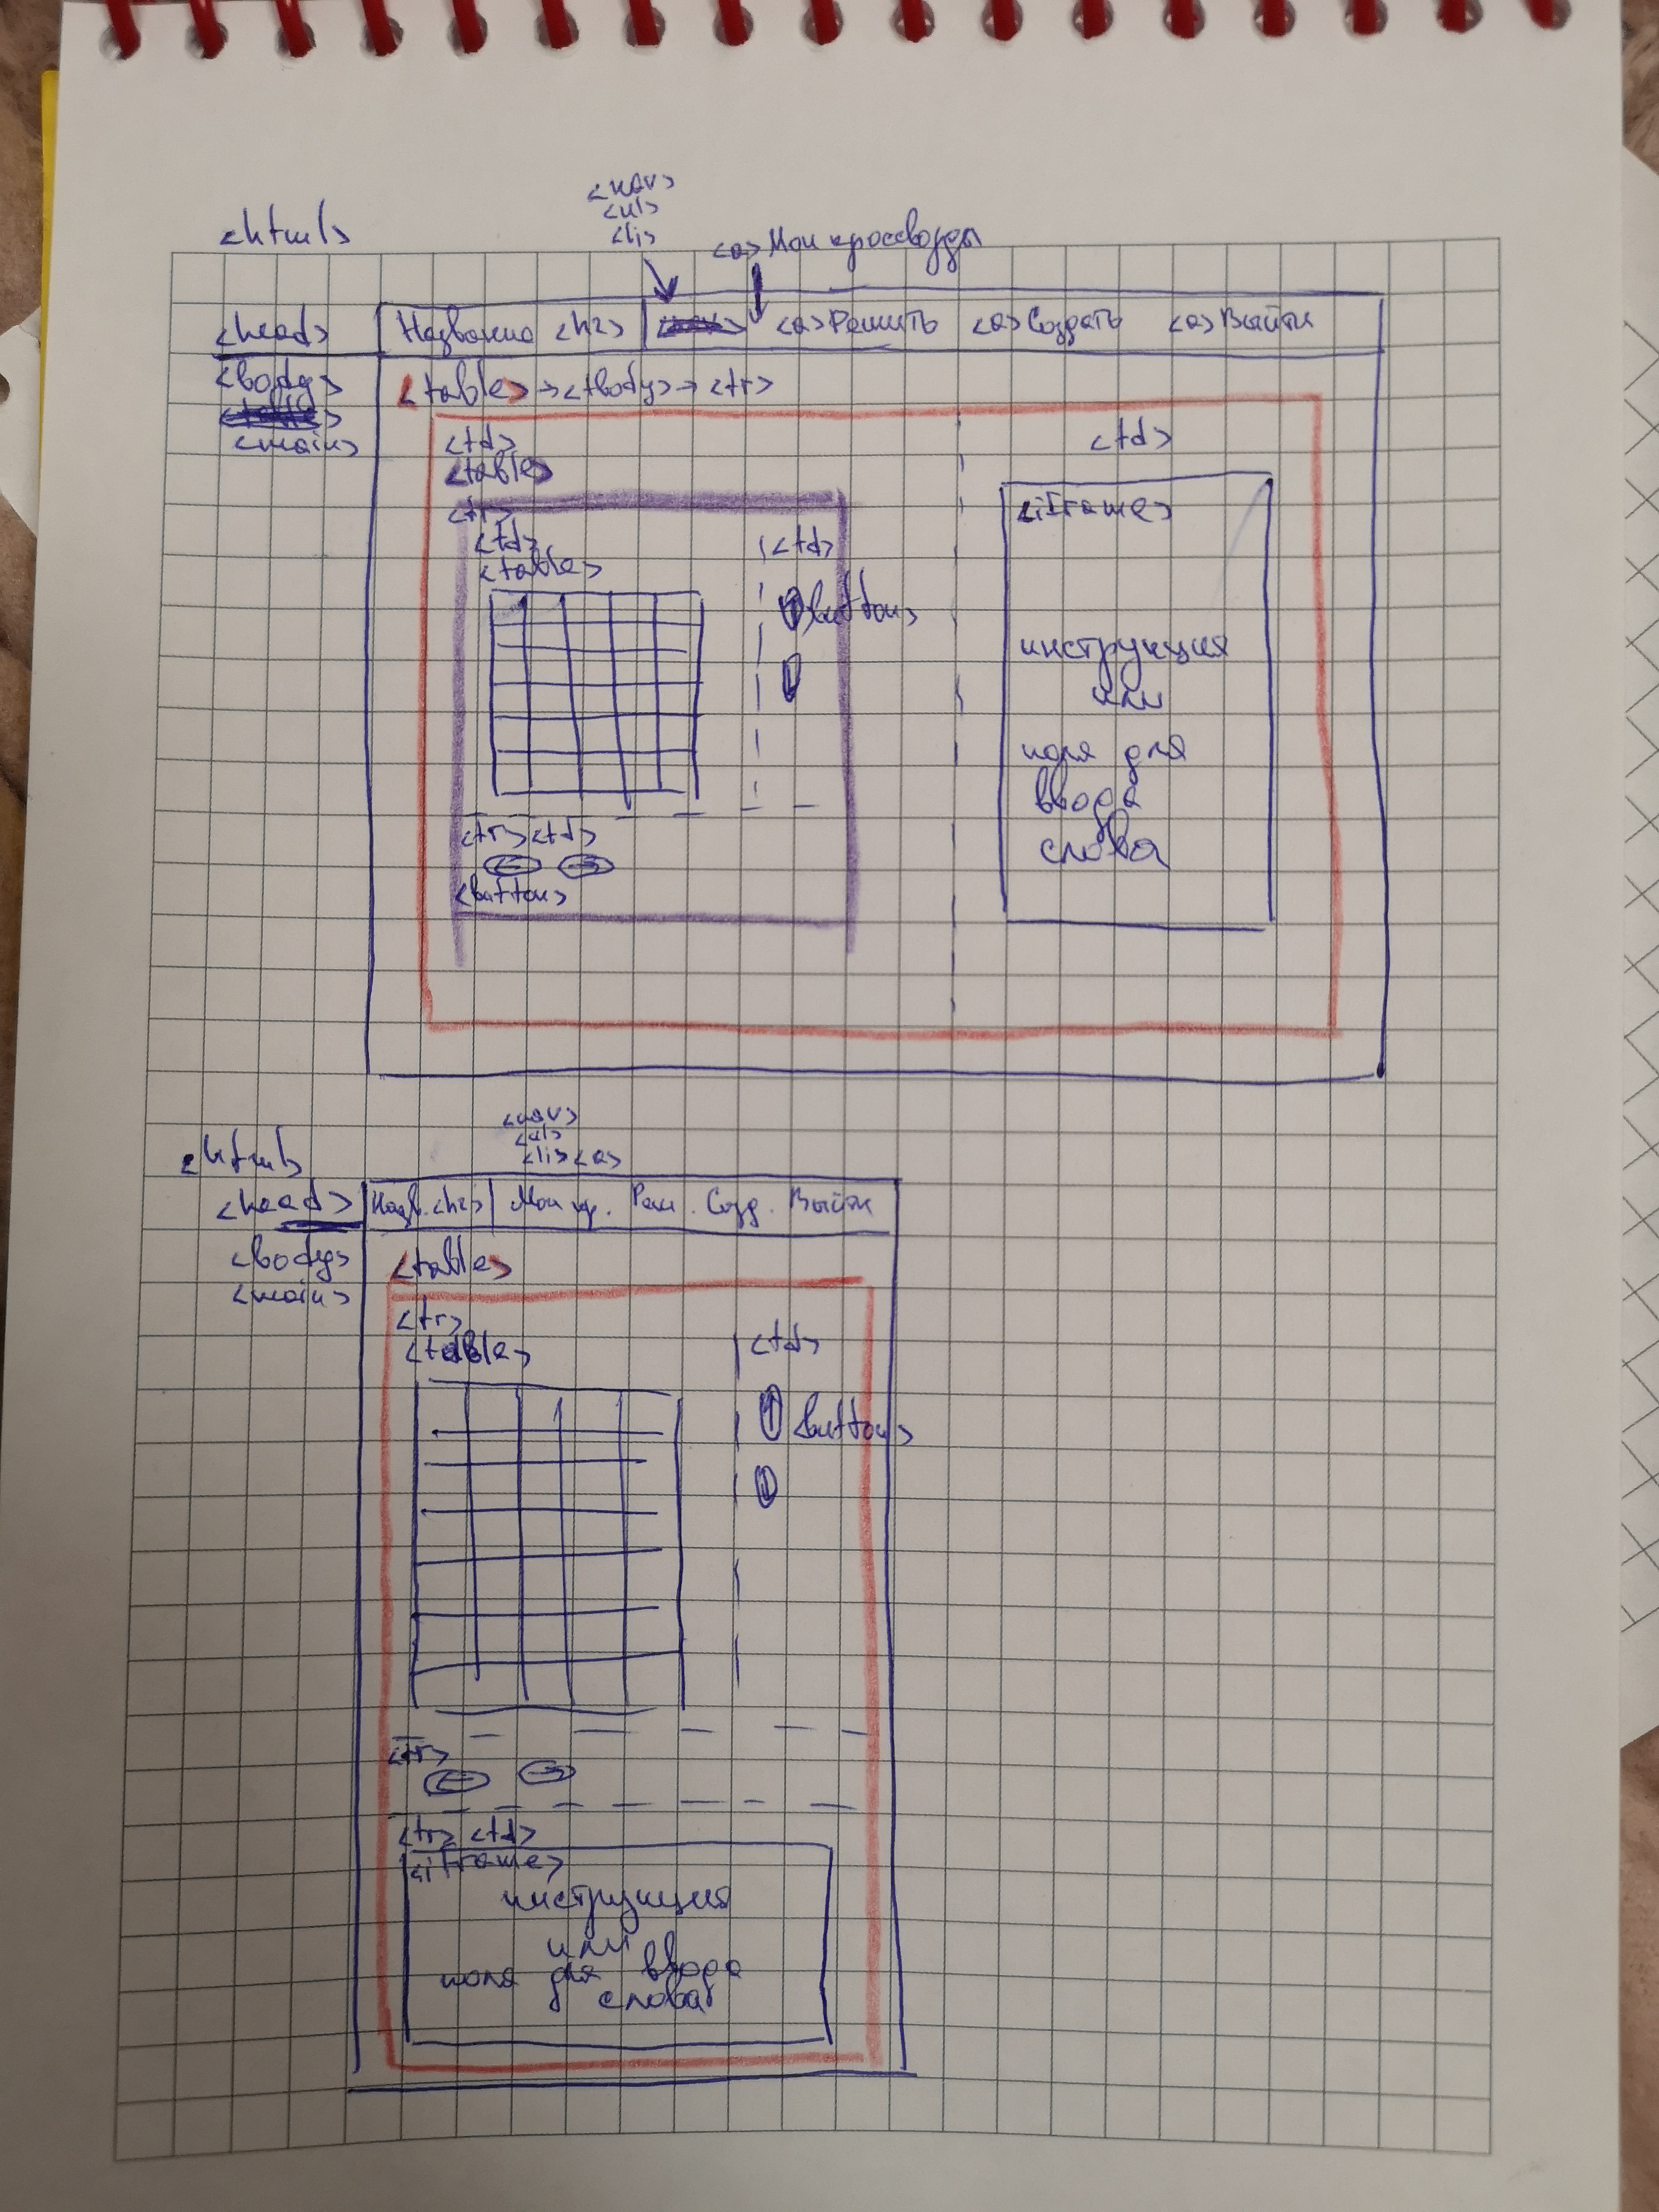 <nav>
<ul>
<li>
<html>
<a> Мои кроссворды
<head>
Название <h2>
<a> Решить
<a> Создать
<a> Выйти
<body>
<main>
<table> → <tbody> → <tr>
<td>
<table>
<td>
<tr>
<td>
<table>
<td>
<button>
<iframe>
инструкция
или
поля для
ввода
слова
<tr> <td>
<button>
<nav>
<ul>
<li> <a>
<html>
<head>
Назв. <h2>
Мои кр. Реш. Созд. Выйти
<body>
<main>
<table>
<tr>
<table>
<td>
<button>
<tr>
<tr> <td>
<iframe>
инструкция
или
поля для ввода
слова